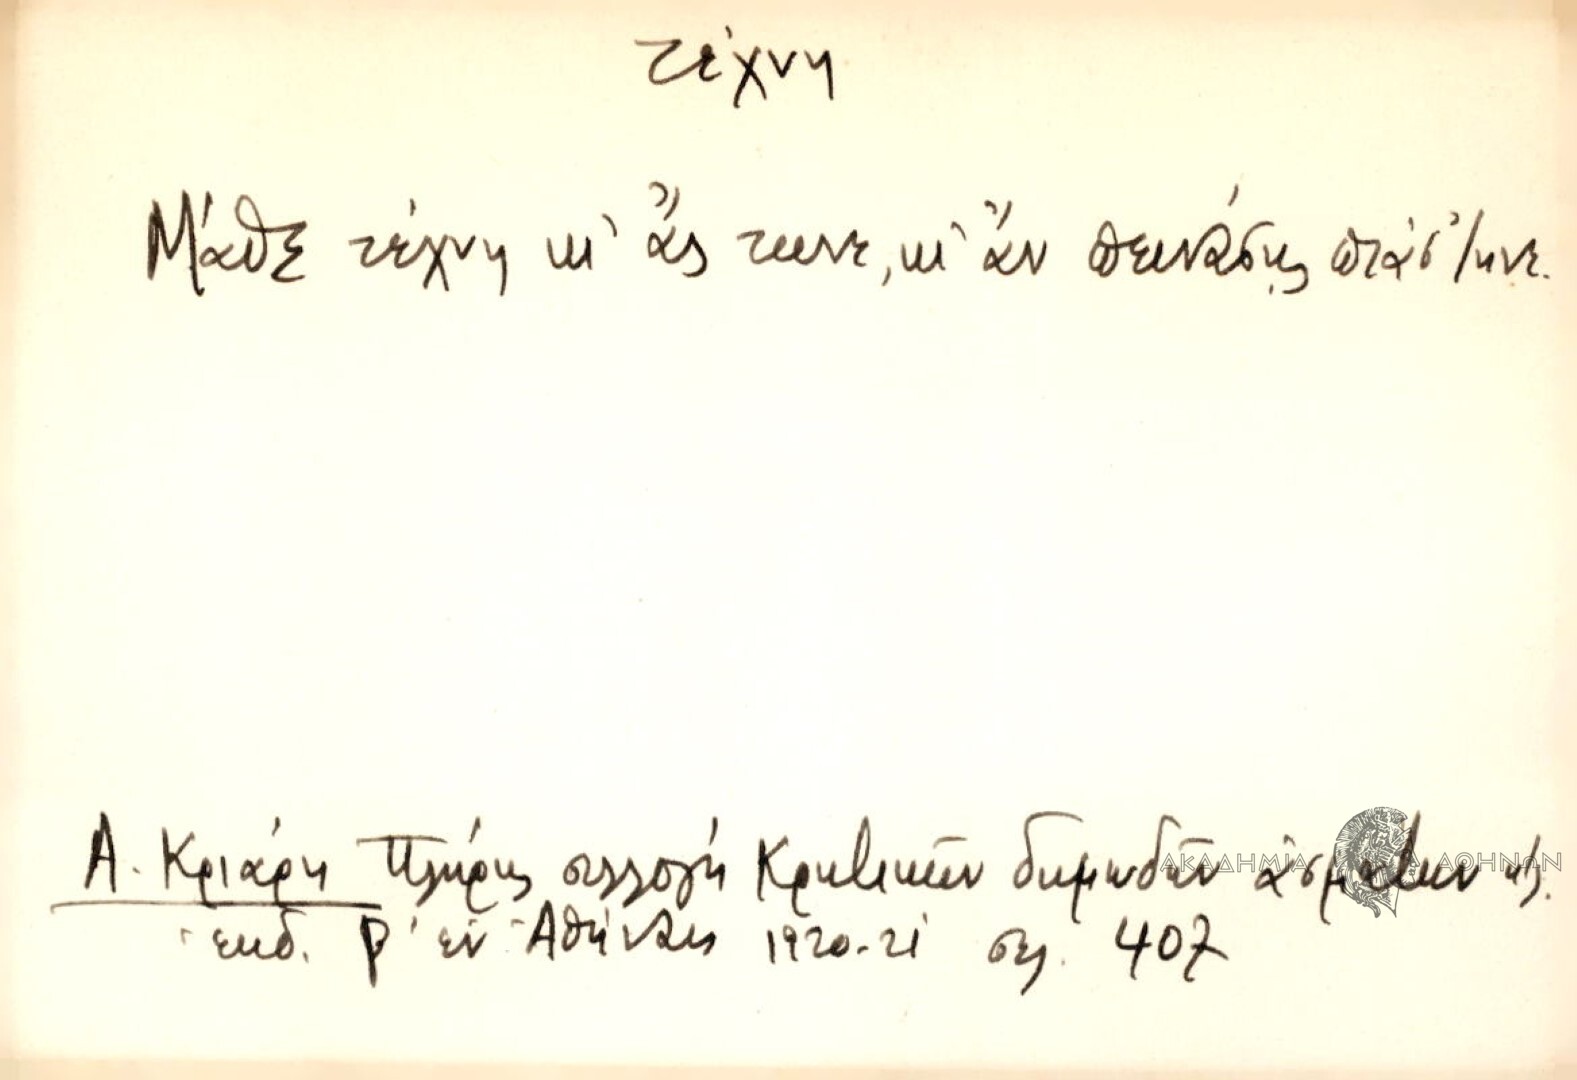 τέχνη
Μάθε τέχνη κι' ἄς τηνε, κι' ἄν πεινάσῃς πιάσ' τηνε.
Α. Κριάρη Πλήρης συλλογή Κρητικῶν δημωδῶν ἀσμάτων κλ.
ἐκδ. Β' ἐν Ἀθήναις 1920-21 σελ. 407
ΑΚΑΔΗΜΙΑ ΑΘΗΝΩΝ